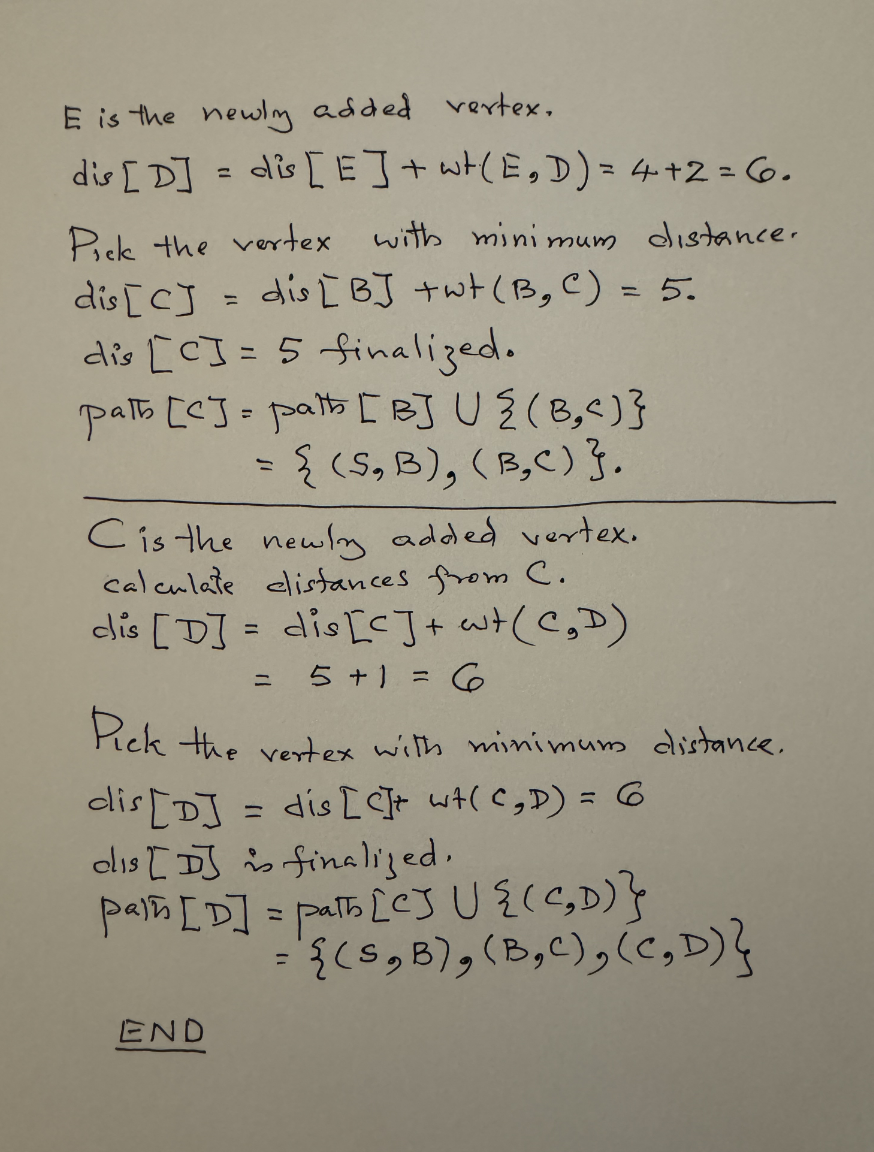 E is the newly added vertex.
dis [D] = dis [E] + wt(E,D) = 4+2 = 6.
Pick the vertex with minimum distance.
dis[C] = dis[B] + wt(B,C) = 5.
dis [C] = 5 finalized.
path [C] = path [B] ∪ {(B,C)}
= {(S,B), (B,C)}.
C is the newly added vertex.
calculate distances from C.
dis [D] = dis[C] + wt(C,D)
= 5 + 1 = 6
Pick the vertex with minimum distance.
dis[D] = dis[C] + wt(C,D) = 6
dis[D] is finalized.
path [D] = path [C] ∪ {(C,D)}
= {(S,B), (B,C), (C,D)}
END